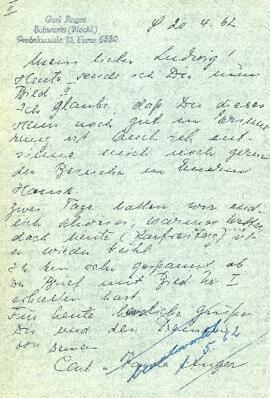 Carl Unger
Schwerin (Meckl)
20.4.62
Mein lieber Ludwig
Heute sende ich Dir mein
Bild II
Ich glaube, daß Dir dieses
Haus noch gut in Erinne
rung ist Auch ich ent
sinne mich noch gern
der Besuche in Eurem
Hause
Zwei Tage hatten wir
schönes warmes Wetter
doch heute (Karfreitag) ist
es wieder kühl
Ich bin sehr gespannt ob
Du Brief mit Bild I
erhalten hast.
Für heute herzliche Grüße
Dir und den
von Deinem
Carl u. Unger
beantwortet
5. 62